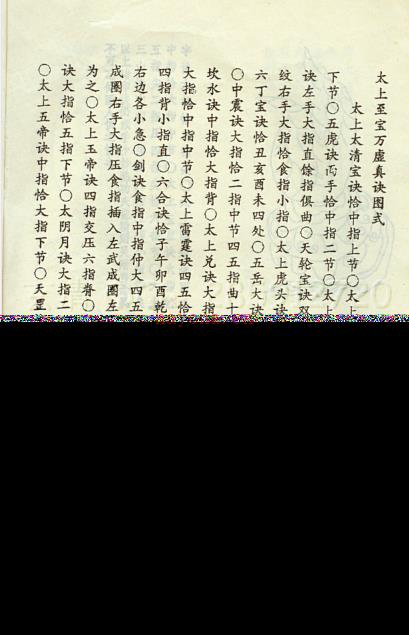 太上至宝万虚真诀图式
太上太清宝诀恰中指上节〇太上
下节〇五虎诀而手恰中指二节〇太上
诀左手大指直馀指俱曲〇天轮宝诀双
纹右手大指恰食指小指〇太上虎头诀
六丁宝诀恰丑亥酉未四处〇五岳大诀
〇中震诀大指恰二指中节四五指曲十
坎水诀中指恰大指背〇太上兑诀大指
大指恰中指中节〇太上雷霆诀四五恰
四指背小指直〇六合诀恰子午卯酉乾
右边各小急〇剑诀食指中指伸大四五
成圈右手大指压食指插入左武成圈左
为之〇太上玉帝诀四指交压六指脊〇
诀大指恰五指下节〇太阴月诀大指二
〇太上五帝诀中指恰大指下节〇天罡